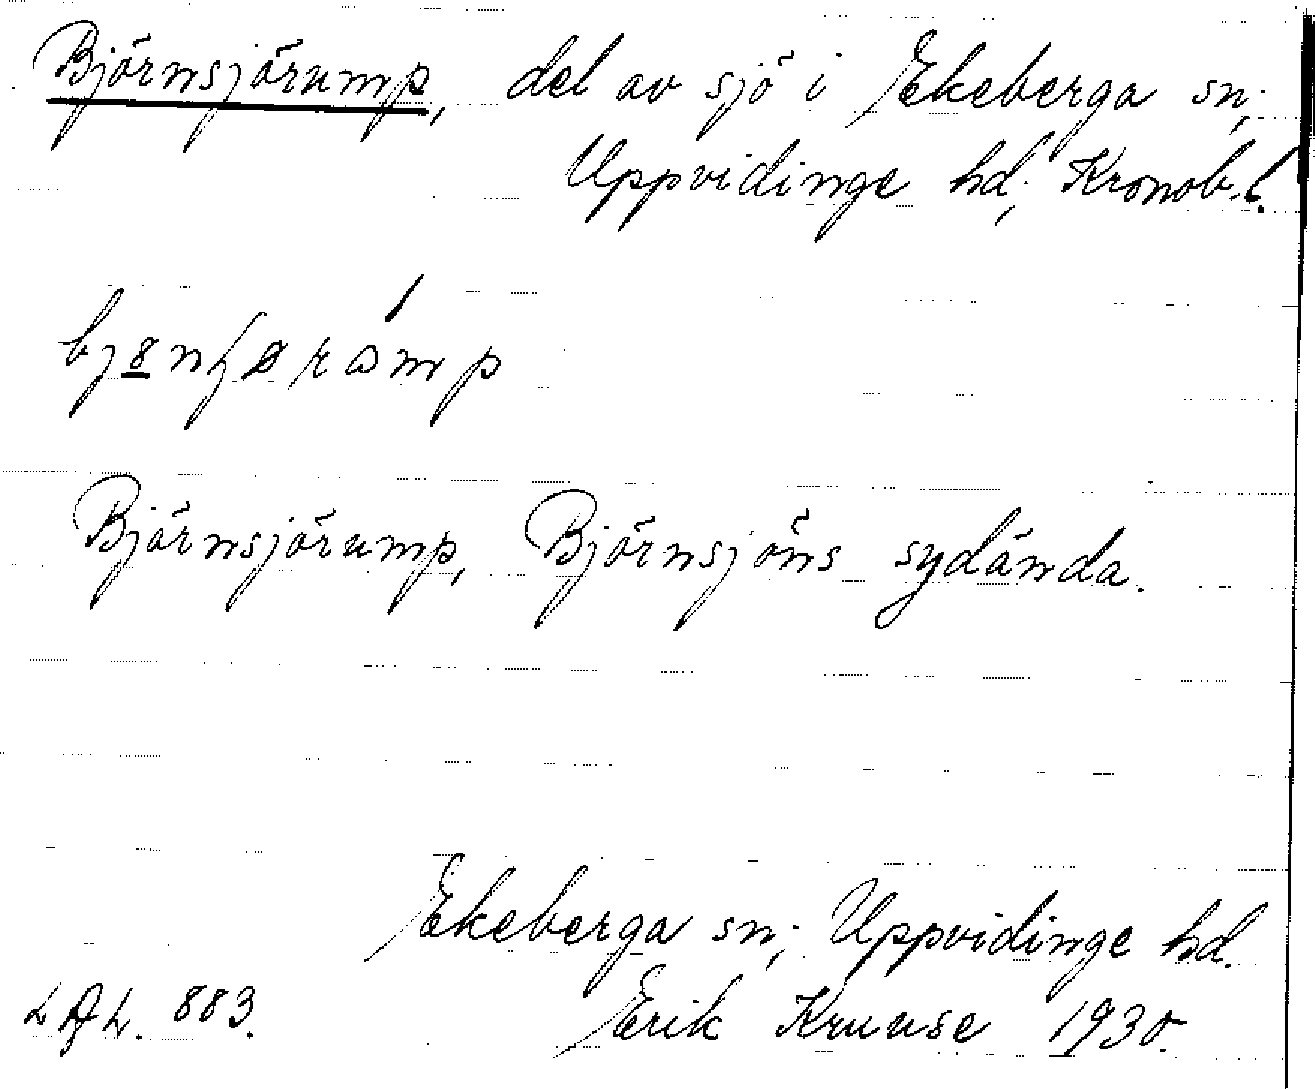 Björnsjörump, del av sjö i Ekeberga sn;
Uppvidinge hd; Kronob. l.
Björnsjörump, Björnsjöns sydända.
Ekeberga sn; Uppvidinge hd.
883. Erik Kruuse 1930.